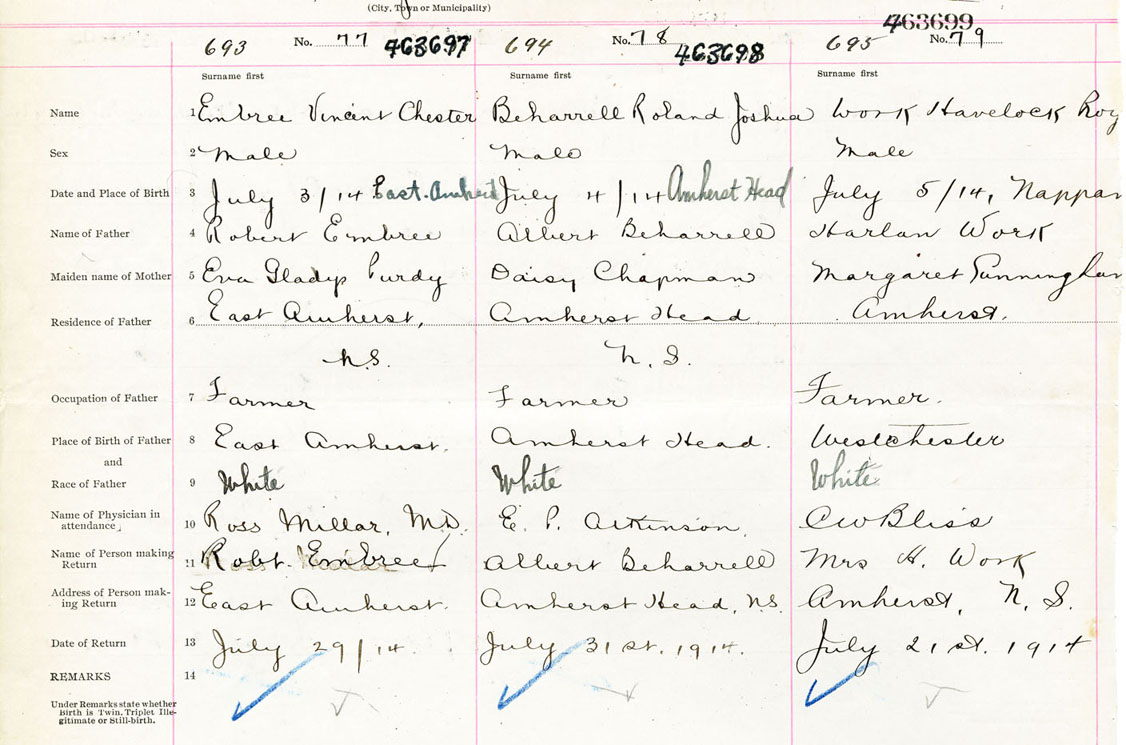 (City, Town or Municipality)
463699
693 No. 77 463697 694 No. 78 463698 695 No. 79
Surname first Surname first Surname first
Name 1 Embree Vincent Chester Beharrell Roland Joshua Work Havelock Roy
Sex 2 Male Male Male
Date and Place of Birth 3 July 3/14 East Amherst July 4/14 Amherst Head July 5/14, Nappan
Name of Father 4 Robert Embree Albert Beharrell Harlan Work
Maiden name of Mother 5 Eva Gladys Purdy Daisy Chapman Margaret Cunningham
Residence of Father 6 East Amherst, Amherst Head Amherst.
N.S. N.S.
Occupation of Father 7 Farmer Farmer Farmer.
Place of Birth of Father 8 East Amherst. Amherst Head. Westchester
and
Race of Father 9 White White White
Name of Physician in
attendance 10 Ross Millar, M.D. E. P. Atkinson, CW Bliss
Name of Person making
Return 11 Robt. Embree Albert Beharrell Mrs H. Work
Address of Person mak-
ing Return 12 East Amherst. Amherst Head, N.S. Amherst, N.S.
Date of Return 13 July 29/14. July 31st. 1914. July 21st. 1914
REMARKS 14
Under Remarks state whether
Birth is Twin, Triplet Ille-
gitimate or Still-birth.